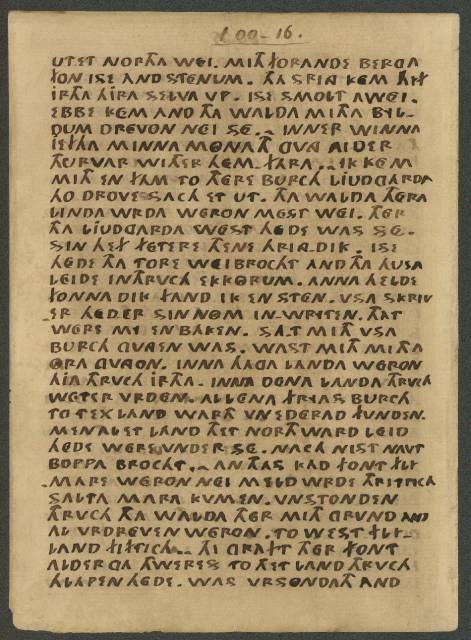 100-16.
UT.ET NORTHA WEI. MITH FORANDE BERGA
FON ISE AND STENUM. THA SPRING KEM HIF
IRTHA HIRA SELVA VP. ISE SMOLT AWEI.
EBBE KEM AND THA WALDA MITHA BYL-
DUM DREVON NEI SE. INNER WINNA
IEFTHA MINNA MONATH GVNG AIDER
THURVAR WITHER HEM-FARA. IK KEM
MITH EN FAM TO THERE BURCH LIUDGARDA
HO DROVE SACH ET UT. THA WALDA THERA
LINDA WRDA WERON MEST WEI. THER
THA LIUDGARDA WEST HEDE WAS SE.
SIN HEF FETERE THENE HRINGDIK. ISE
HEDE THA TORE WEIBROCHT AND THA HUSA
LEIDE INTHRVCH EKKORUM. ANNA HELDE
FONNA DIK FAND IK EN STEN. VSA SKRIV
-ER HEDER SIN NOM IN-WRITEN. THAT
WERE MY EN BAKEN. SA.T MITH VSA
BURCH GVNGEN WAS. WAST MITH MITHA
ORA GVNGON. INNA HAGA LANDA WERON
HIA THRVCH IRTHA. INNA DENA LANDA THRVCH
WETER VRDEN. ALLENA FRYAS BURCH
TO TEXLAND WARTH VNEDERAD FUNDEN.
MEN AL ET LAND THET NORTHWARD LEID
HEDE WERE UNDER SE. NACH NIST NAVT
BOPPA BROCHT. AN THAS KAD FONT FLI
-MARE WERON NEI MELD WRDE THRITICH
SALTA MARA KUMEN. VNSTONDEN
THRVCH THA WALDA THER MITH GRUND AND
AL VRDREVEN WERON. TO WEST FLI-
LAND FIFTICH. THI GRAFT THER FONT
ALDERGA THWERES TO THET LAND THRVCH
HLAPEN HEDE. WAS VRSONDATH AND